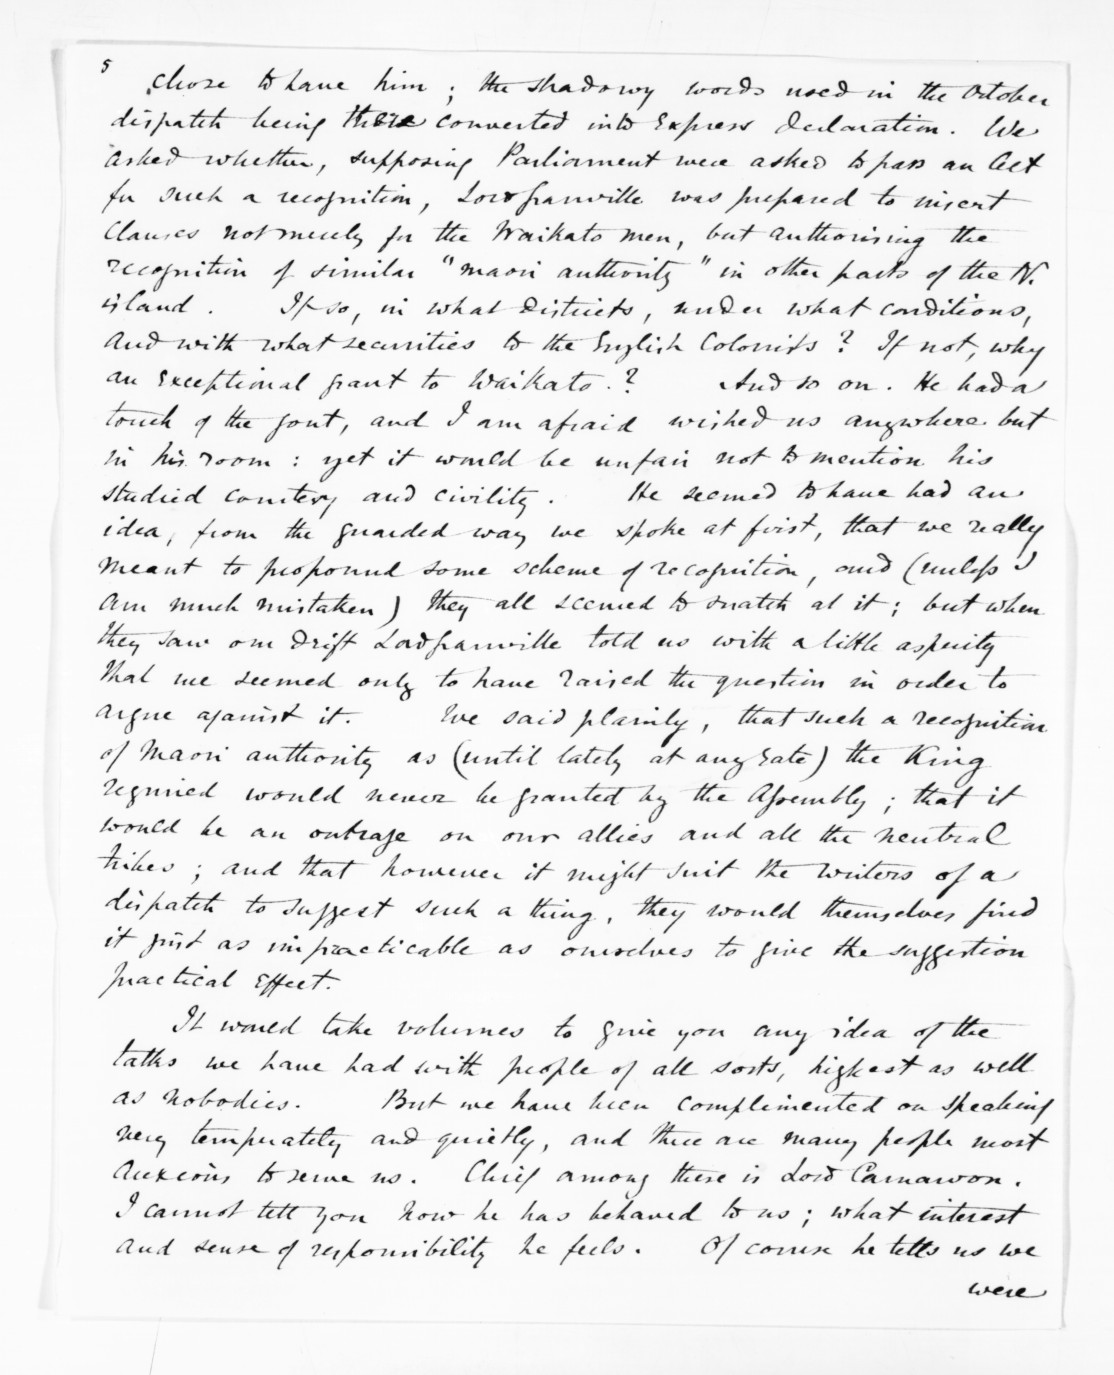 5
chose to have him ; the shadowy words used in the October
dispatch being there converted into express declaration. We
asked whether, supposing Parliament were asked to pass an Act
for such a recognition, Lord Granville was prepared to insert
clauses not merely for the Waikato men, but authorising the
recognition of similar "maori authority" in other parts of the N.
island. If so, in what districts, under what conditions,
and with what securities to the English Colonists? If not, why
an exceptional grant to Waikato.? And so on. He had a
touch of the gout, and I am afraid wished us anywhere but
in his room : yet it would be unfair not to mention his
studied courtesy and civility. He seemed to have had an
idea, from the guarded way we spoke at first, that we really
meant to propound some scheme of recognition, and (unless I
am much mistaken) they all seemed to snatch at it ; but when
they saw our drift Lord Granville told us with a little asperity
that we seemed only to have raised the question in order to
argue against it. We said plainly, that such a recognition
of Maori authority as (until lately at any rate) the King
required would never be granted by the Assembly ; that it
would be an outrage on our allies and all the neutral
tribes ; and that however it might suit the writers of a
dispatch to suggest such a thing, they would themselves find
it just as impracticable as ourselves to give the suggestion
practical effect.
It would take volumes to give you any idea of the
talks we have had with people of all sorts, highest as well
as nobodies. But we have been complimented on speaking
very temperately and quietly, and there are many people most
anxious to serve us. Chief among these is Lord Carnarvon.
I cannot tell you how he has behaved to us ; what interest
and sense of responsibility he feels. Of course he tells us we
were